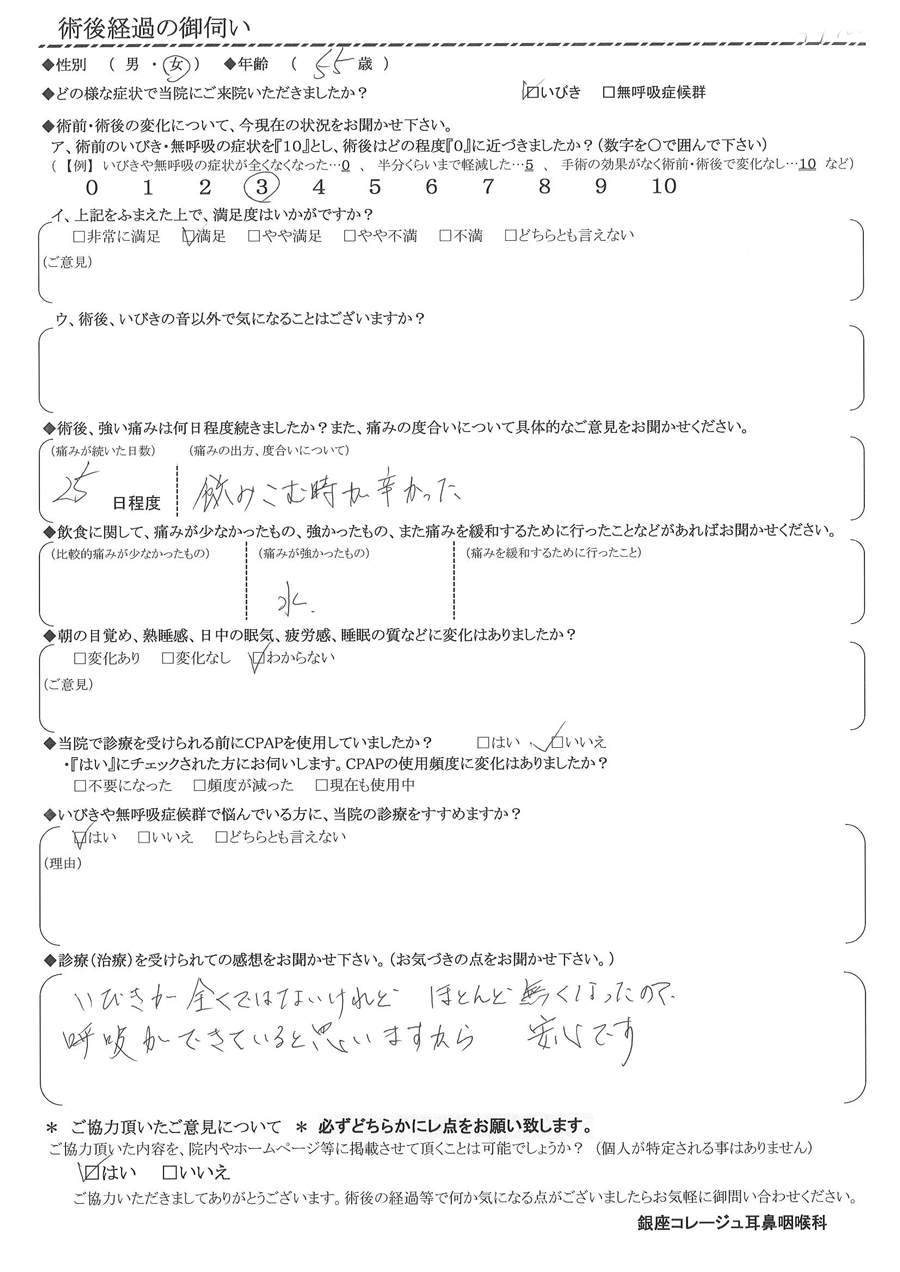 術後経過の御伺い
◆性別 ( 男 ・ 女 ) ◆年齢 ( 55 歳 )
◆どの様な症状で当院にご来院いただきましたか? ☑いびき □無呼吸症候群
◆術前・術後の変化について、今現在の状況をお聞かせ下さい。
ア、術前のいびき・無呼吸の症状を『10』とし、術後はどの程度『0』に近づきましたか?(数字を○で囲んで下さい)
(【例】いびきや無呼吸の症状が全くなくなった…0 、 半分くらいまで軽減した…5 、 手術の効果がなく術前・術後で変化なし…10 など)
0 1 2 3 4 5 6 7 8 9 10
イ、上記をふまえた上で、満足度はいかがですか?
□非常に満足 ☑満足 □やや満足 □やや不満 □不満 □どちらとも言えない
(ご意見)
ウ、術後、いびきの音以外で気になることはございますか?
◆術後、強い痛みは何日程度続きましたか?また、痛みの度合いについて具体的なご意見をお聞かせください。
(痛みが続いた日数) (痛みの出方、度合いについて)
25 日程度 飲みこむ時が辛かった
◆飲食に関して、痛みが少なかったもの、強かったもの、また痛みを緩和するために行ったことなどがあればお聞かせください。
(比較的痛みが少なかったもの) (痛みが強かったもの) (痛みを緩和するために行ったこと)
水.
◆朝の目覚め、熟睡感、日中の眠気、疲労感、睡眠の質などに変化はありましたか?
□変化あり □変化なし ☑わからない
(ご意見)
◆当院で診療を受けられる前にCPAPを使用していましたか? □はい ☑いいえ
・『はい』にチェックされた方にお伺いします。CPAPの使用頻度に変化はありましたか?
□不要になった □頻度が減った □現在も使用中
◆いびきや無呼吸症候群で悩んでいる方に、当院の診療をすすめますか?
☑はい □いいえ □どちらとも言えない
(理由)
◆診療(治療)を受けられての感想をお聞かせ下さい。(お気づきの点をお聞かせ下さい。)
いびきが全くではないけれど ほとんど無くなったので
呼吸ができていると思いますから 安心です
＊ ご協力頂いたご意見について ＊ 必ずどちらかにレ点をお願い致します。
ご協力頂いた内容を、院内やホームページ等に掲載させて頂くことは可能でしょうか? (個人が特定される事はありません)
☑はい □いいえ
ご協力いただきましてありがとうございます。術後の経過等で何か気になる点がございましたらお気軽に御問い合わせください。
銀座コレージュ耳鼻咽喉科